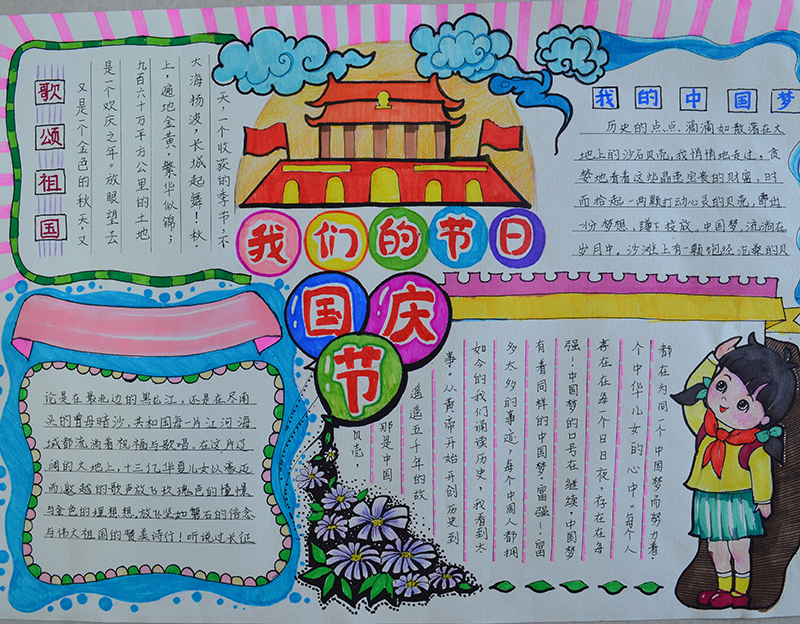 歌颂祖国
又是一个金色的秋天，又
是一个欢庆之年。放眼望去
九百六十万平方公里的土地
上，遍地金黄，繁华似锦；
大海扬波，长城起舞！秋
天，一个收获的季节，不
我们的节日
国庆节
我的中国梦
历史的点点滴滴如散落在大
地上的沙石贝壳，我悄悄地走过，贪
婪地看着这些晶莹宝贵的财富，时
而拾起一两颗打动心灵的贝壳，
一份梦想，蹲下投放。中国梦，流淌在
岁月中，沙滩上有一颗饱经沧桑的贝
论是在最北边的黑龙江，还是在尽南
头的曾母暗沙，共和国每一片江河海
域都流淌着祝福与歌唱。在这片辽
阔的大地上，十三亿华夏儿女以豪迈
而激越的歌声放飞玫瑰色的憧憬
与金色的理想，放飞坚如磐石的信念
与伟大祖国的赞美诗行！听说过长征
都在为同一个中国梦而努力着，
个中华儿女的心中。每个人
存在在每一个日日夜，存在在每
强！中国梦的口号在继续，中国梦
有着同样的中国梦，富强！富
多太多的事迹，每个中国人都拥
如今的我们诵读历史，我看到太
事，从黄帝开始开创历史到
遥遥五千年的故
那是中国
贝壳，